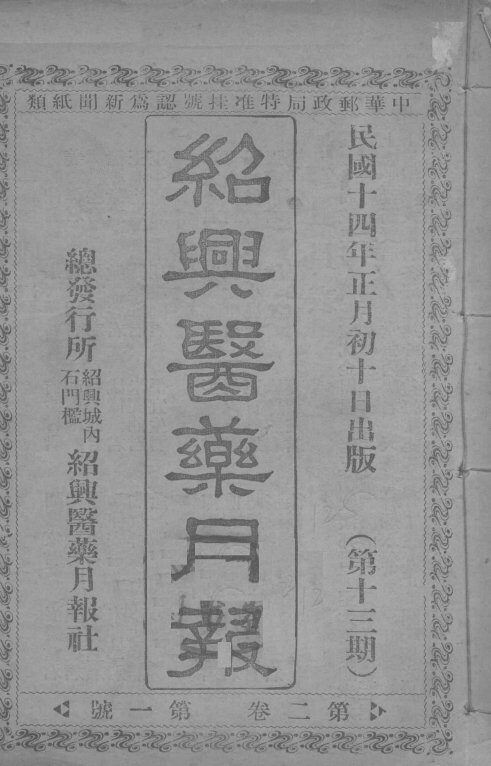 中華郵政局特准挂號認爲新聞紙類
民國十四年正月初十日出版
（第十三期）
紹興醫藥月報
總發行所
紹興城內
石門檻
紹興醫藥月報社
第二卷 第一號